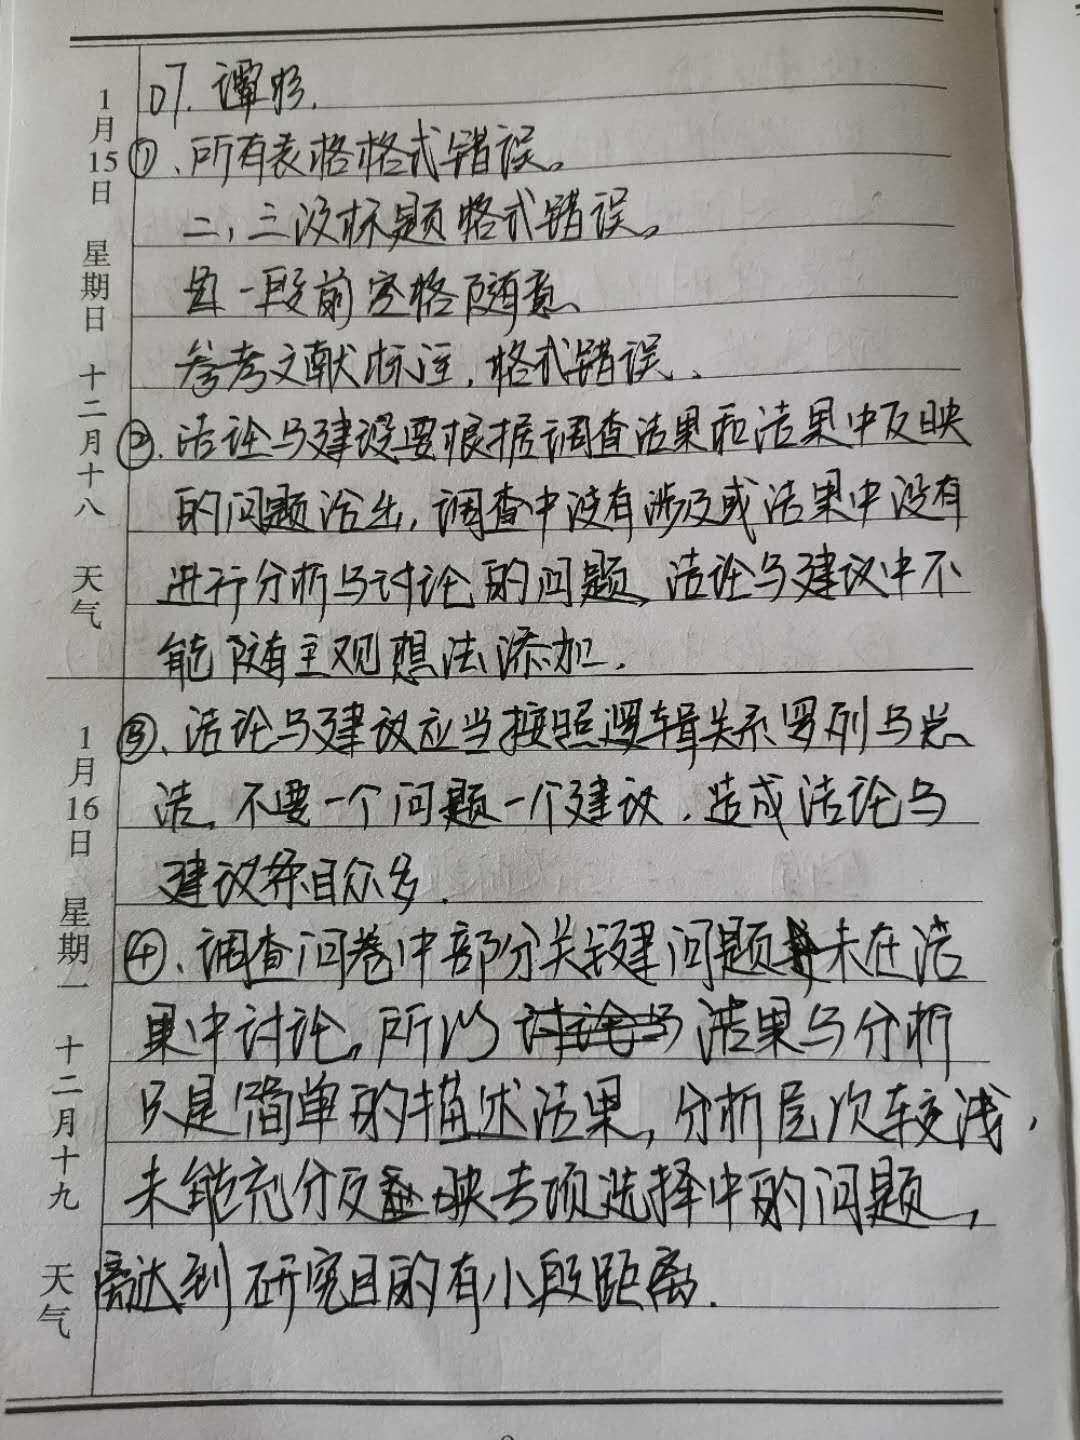 07. 谭彬.
①、所有表格格式错误。
二,三级标题格式错误。
每一段前空格随意、
参考文献标注,格式错误、
②. 结论与建议要根据调查结果和结果中反映
的问题给出,调查中没有涉及或结果中没有
进行分析与讨论的问题,结论与建议中不
能随主观想法添加.
③、结论与建议应当按照逻辑关系罗列与总
结,不要一个问题一个建议.造成结论与
建议条目众多.
④、调查问卷中部分关键问题未在结
果中讨论,所以 讨论与 结果与分析
只是简单的描述结果,分析层次较浅,
未能充分反映专项选择中的问题,
离达到研究目的有小段距离.
1月15日 星期日 十二月十八 天气
1月16日 星期一 十二月十九 天气